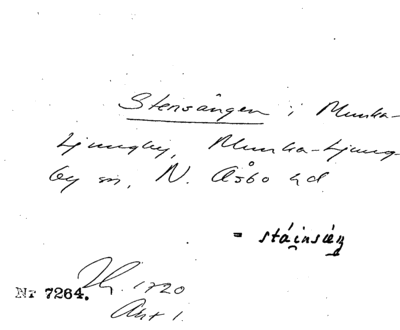 Stensången i Munka-
Ljungby, Munka-Ljung-
by sn, N. Åsbo hd
= stáinsiɛŋ
Nr 7264.
Jb. 1720
Akt 1.